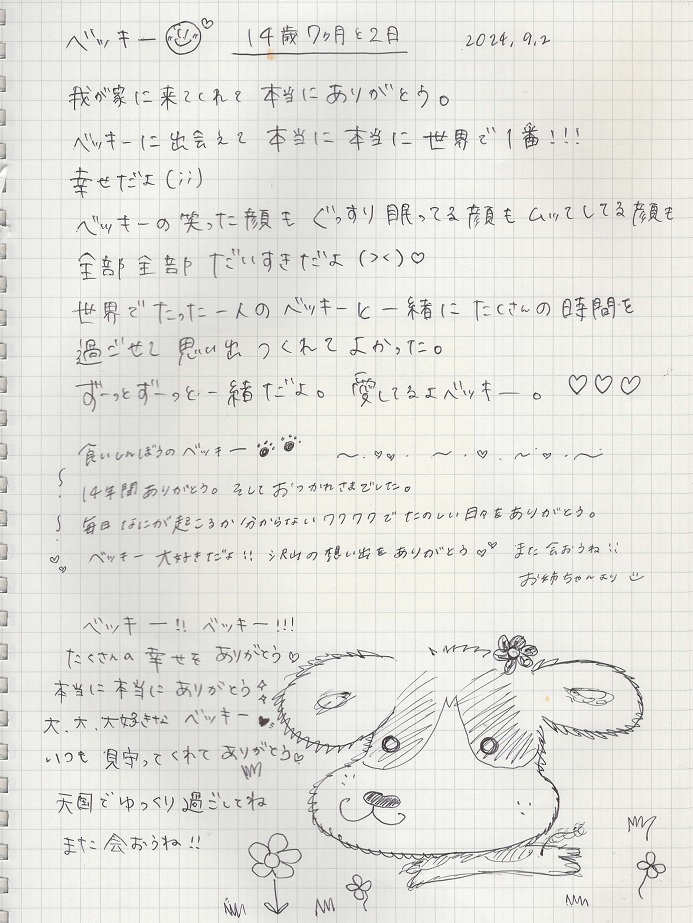 ベッキー 14歳7ヶ月と2日 2024.9.2
我が家に来てくれて 本当にありがとう。
ベッキーに出会えて 本当に本当に世界で1番!!!
幸せだよ(;;)
ベッキーの笑った顔も ぐっすり眠ってる顔も ムッてしてる顔も
全部全部 だいすきだよ(><)♡
世界でたった一人のベッキーと一緒にたくさんの時間を
過ごせて 思い出つくれてよかった。
ずーっとずーっと一緒だよ。愛してるよベッキー。♡♡♡
食いしんぼうのベッキー
14年間ありがとう。そしておつかれさまでした。
毎日なにが起こるか分からないワクワクでたのしい日々をありがとう。
ベッキー大好きだよ!! 沢山の想い出をありがとう♡♡ また会おうね!!
お姉ちゃんより
ベッキー!! ベッキー!!!
たくさんの幸せをありがとう♡
本当に本当にありがとう
大、大、大好きな ベッキー♥
いつも見守ってくれてありがとう♡
天国でゆっくり過ごしてね
また会おうね!!